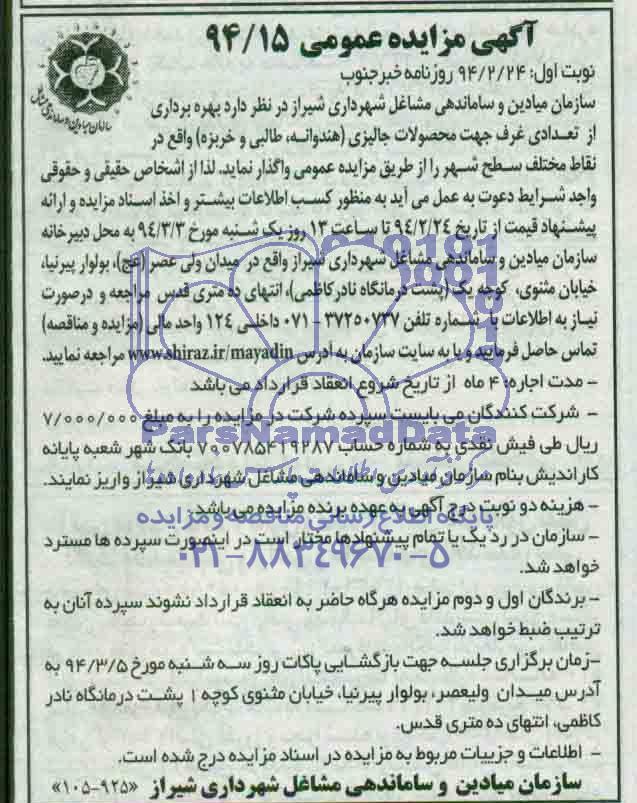 آگهی مزایده عمومی ۹۴/۱۵
نوبت اول: ۹۴/۲/۲۴ روزنامه خبرجنوب
سازمان میادین و ساماندهی مشاغل شهرداری شیراز در نظر دارد بهره برداری
از تعدادی غرف جهت محصولات جالیزی (هندوانه، طالبی و خربزه) واقع در
نقاط مختلف سطح شهر را از طریق مزایده عمومی واگذار نماید. لذا از اشخاص حقیقی و حقوقی
واجد شرایط دعوت به عمل می آید به منظور کسب اطلاعات بیشتر و اخذ اسناد مزایده و ارائه
پیشنهاد قیمت از تاریخ ۹۴/۲/۲۴ تا ساعت ۱۳ روز یک شنبه مورخ ۹۴/۳/۳ به محل دبیرخانه
سازمان میادین و ساماندهی مشاغل شهرداری شیراز واقع در میدان ولی عصر (عج)، بولوار پیرنیا،
خیابان مثنوی، کوچه یک (پشت درمانگاه نادر کاظمی)، انتهای ده متری قدس مراجعه و درصورت
نیاز به اطلاعات با شماره تلفن ۳۷۲۵۰۷۳۷-۰۷۱ داخلی ۱۲۴ واحد مالی (مزایده و مناقصه)
تماس حاصل فرمایید و یا به سایت سازمان به آدرس www.shiraz.ir/mayadin مراجعه نمایید.
- مدت اجاره: ۴ ماه از تاریخ شروع انعقاد قرارداد می باشد
- شرکت کنندگان می بایست سپرده شرکت در مزایده را به مبلغ ۷/۰۰۰/۰۰۰
ریال طی فیش نقدی به شماره حساب ۷۰۰۷۸۵۴۱۹۲۸۷ بانک شهر شعبه پایانه
کاراندیش بنام سازمان میادین و ساماندهی مشاغل شهرداری شیراز واریز نمایند.
- هزینه دو نوبت درج آگهی به عهده برنده مزایده می باشد.
- سازمان در رد یک یا تمام پیشنهادها مختار است در اینصورت سپرده ها مسترد
خواهد شد.
- برندگان اول و دوم مزایده هرگاه حاضر به انعقاد قرارداد نشوند سپرده آنان به
ترتیب ضبط خواهد شد.
-زمان برگزاری جلسه جهت بازگشایی پاکات روز سه شنبه مورخ ۹۴/۳/۵ به
آدرس میدان ولیعصر، بولوار پیرنیا، خیابان مثنوی کوچه ۱ پشت درمانگاه نادر
کاظمی، انتهای ده متری قدس.
- اطلاعات و جزییات مربوط به مزایده در اسناد مزایده درج شده است.
سازمان میادین و ساماندهی مشاغل شهرداری شیراز «۹۲۵-۱۰۵»
ParsNamadData
پایگاه اطلاع رسانی مناقصه و مزایده
۰۲۱-۸۸۳۴۹۶۷۰-۵